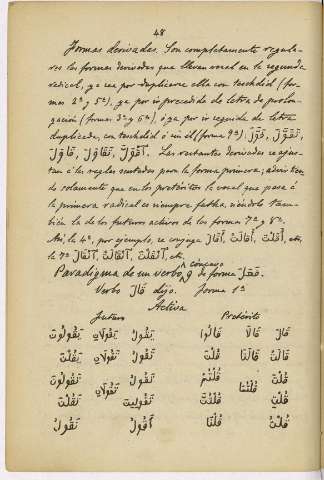 48
Formas derivadas. Son completamente regula-
res las formas derivadas que llevan vocal en la segunda
radical, ya sea por duplicarse ella con teschdid (for-
mas 2ª y 5ª), ya por ir precedida de letra de prolon-
gación (formas 3ª y 6ª), ó ya por ir seguida de letra
duplicada, con teschdid ó sin él (forma 9ª): قَوَّلَ, تَقَوَّلَ,
قَاوَلَ, تَقَاوَلَ, . Las restantes derivadas se ajus-
tan á las reglas sentadas para la forma primera; advirtien-
do solamente que en los pretéritos la vocal que pasa á
la primera radical es siempre fatha, siéndolo tam-
bién la de los futuros activos de las formas 7ª y 8ª.
Así, la 4ª, por ejemplo, se conjuga أَقَالَ, أَقَالَتْ, أَقَلْتَ, etc,
la 7ª إِنْقَالَ, إِنْقَالَتْ, etc.
Paradigma de un verbo cóncavo و de forma فَعَلَ.
Verbo قَالَ dijo. forma 1ª
Activa
Futuro Pretérito
قَالَ قَالَا قَالُوا يَقُولُ يَقُولَانِ يَقُولُونَ
قَالَتْ قَالَتَا قُلْنَ تَقُولُ تَقُولَانِ يَقُلْنَ
قُلْتَ قُلْتُمَا قُلْتُمْ تَقُولُ تَقُولَانِ تَقُولُونَ
قُلْتِ قُلْتُنَّ تَقُولِينَ تَقُلْنَ
قُلْتُ قُلْنَا أَقُولُ نَقُولُ